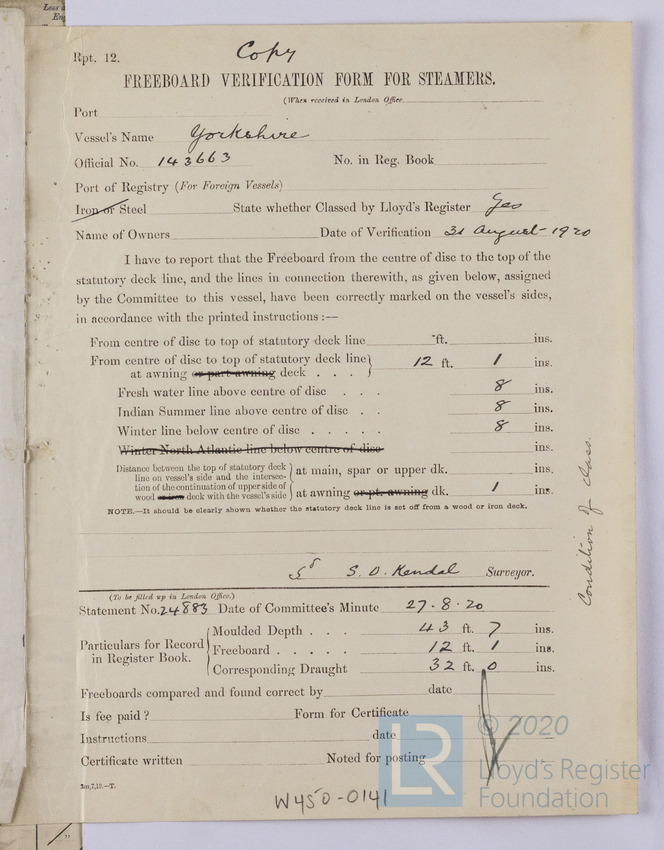 Less
En
Rpt. 12.
Copy
FREEBOARD VERIFICATION FORM FOR STEAMERS.
(When received in London Office
Port
Vessel's Name Yorkshire
Official No. 143663 No. in Reg. Book
Port of Registry (For Foreign Vessels)
Iron or Steel State whether Classed by Lloyd's Register Yes
Name of Owners Date of Verification 31 August 1920
I have to report that the Freeboard from the centre of disc to the top of the
statutory deck line, and the lines in connection therewith, as given below, assigned
by the Committee to this vessel, have been correctly marked on the vessel's sides,
in accordance with the printed instructions :—
From centre of disc to top of statutory deck line ft. ins.
From centre of disc to top of statutory deck line
at awning or part awning deck . . . 12 ft. 1 ins.
Fresh water line above centre of disc . . . 8 ins.
Indian Summer line above centre of disc . . 8 ins.
Winter line below centre of disc . . . . . 8 ins.
Winter North Atlantic line below centre of disc ins.
Distance between the top of statutory deck
line on vessel's side and the intersec-
tion of the continuation of upper side of
wood or iron deck with the vessel's side
at main, spar or upper dk. ins.
at awning or pt. awning dk. 1 ins.
NOTE.—It should be clearly shown whether the statutory deck line is set off from a wood or iron deck.
Condition of Class.
Sd S. D. Kendal Surveyor.
(To be filled up in London Office.)
Statement No. 24883 Date of Committee's Minute 27.8.20
Particulars for Record
in Register Book.
Moulded Depth . . . 43 ft. 7 ins.
Freeboard . . . . . 12 ft. 1 ins.
Corresponding Draught 32 ft. 0 ins.
Freeboards compared and found correct by date
Is fee paid ? Form for Certificate
Instructions date
Certificate written Noted for posting
2m,7,19.—T.
W450-0141
LR
© 2020
Lloyd's Register
Foundation